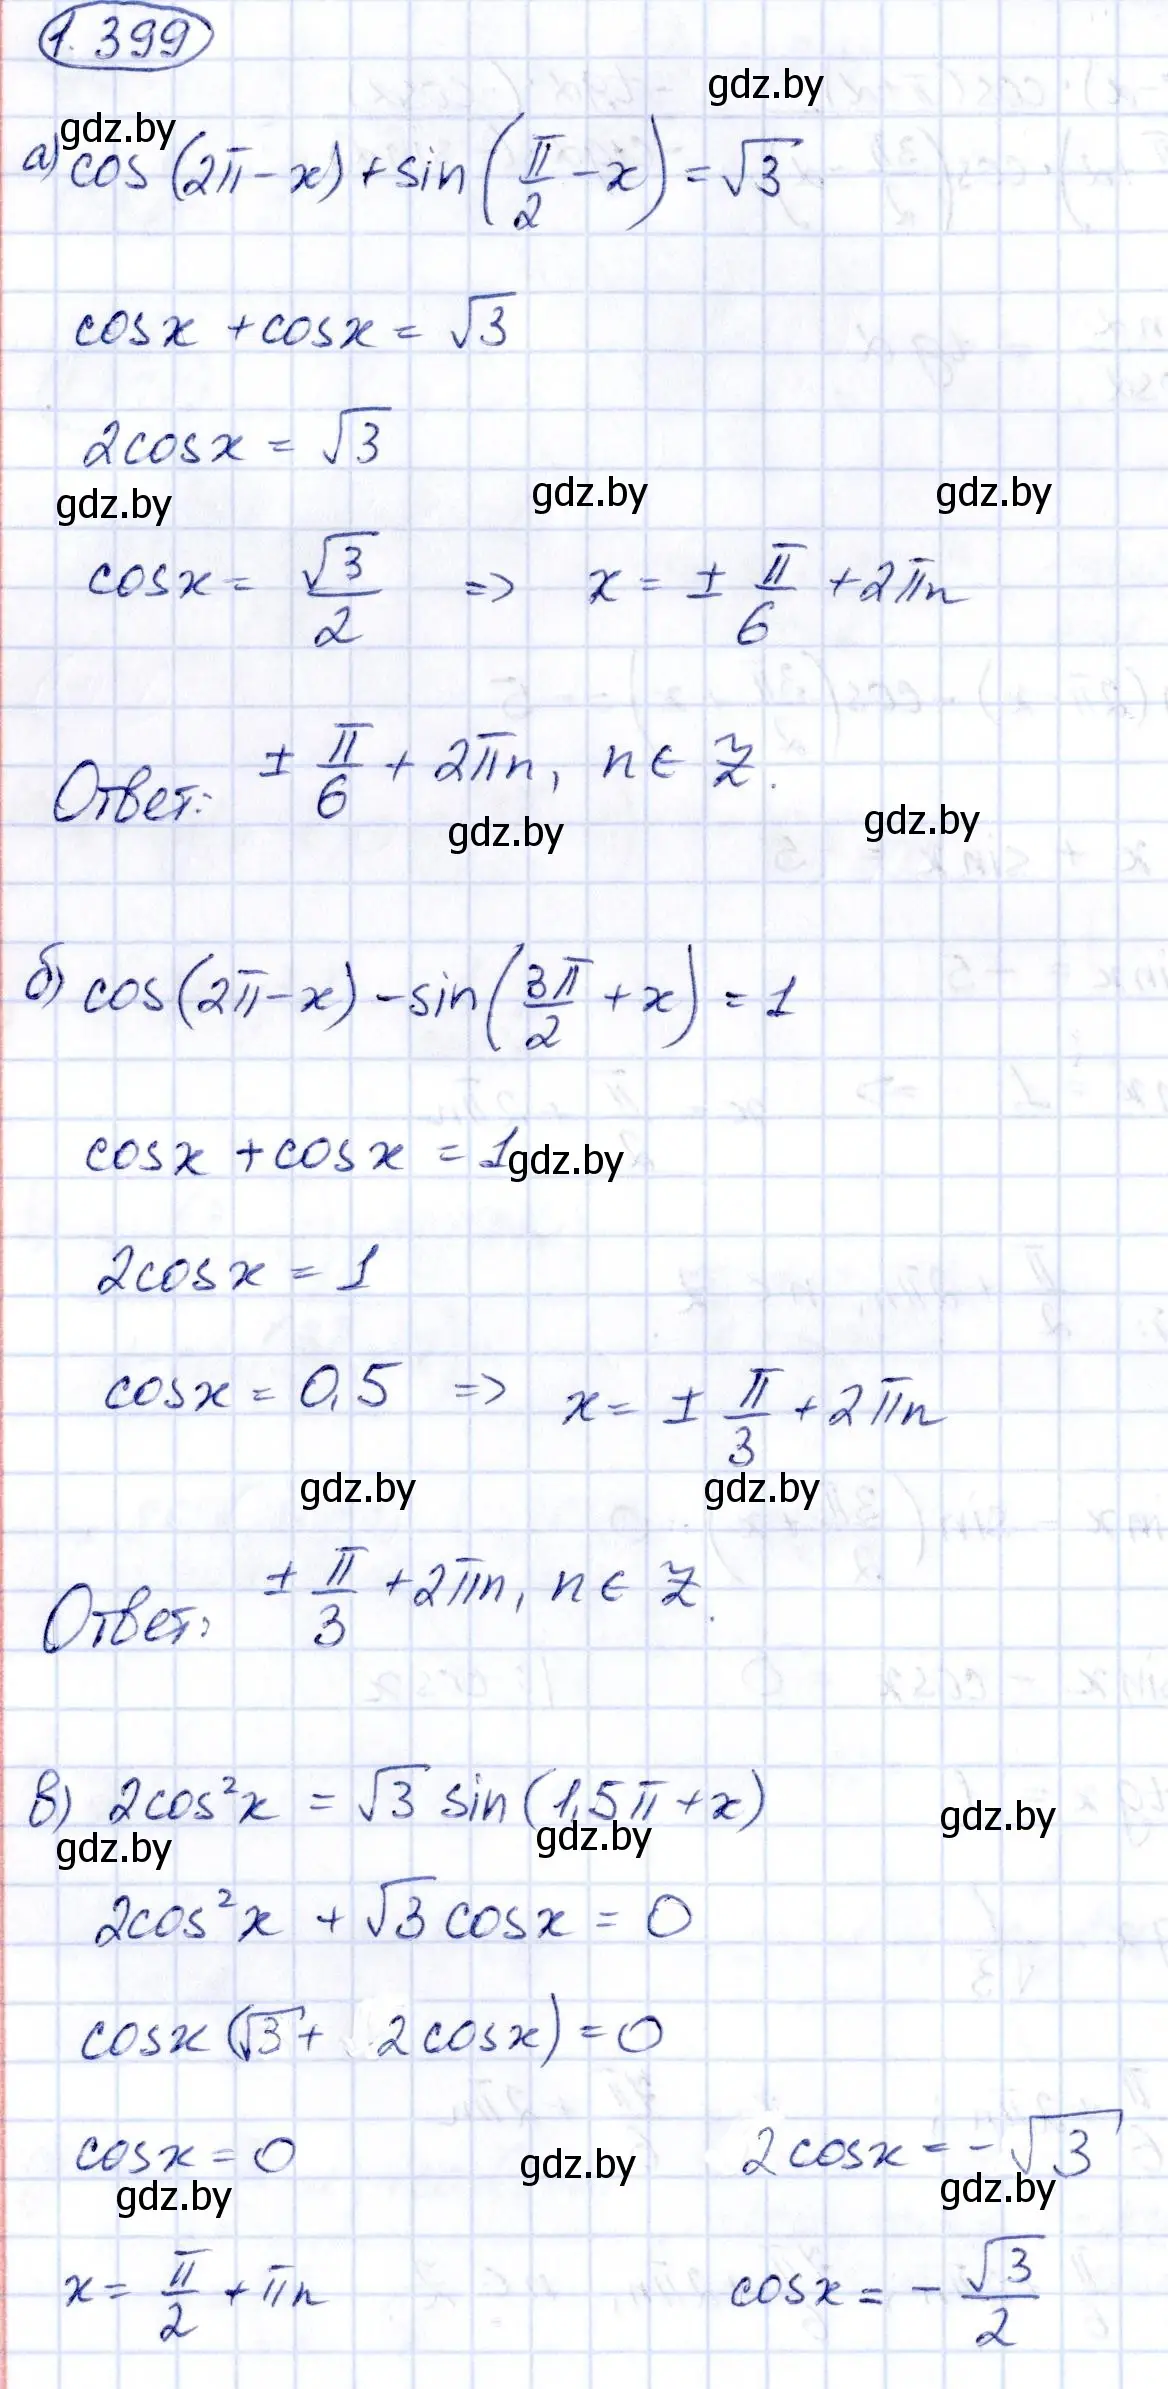 1.399
gdz.by
gdz.by
а) cos(2π-x)+sin(π/2-x)=√3
cosx+cosx=√3
2cosx=√3
gdz.by gdz.by gdz.by
cosx=√3/2 => x=±π/6+2πn
Ответ: ±π/6+2πn, n∈Z.
gdz.by gdz.by
б) cos(2π-x)-sin(3π/2+x)=1
cosx+cosx=1
gdz.by
2cosx=1
cosx=0,5 => x=±π/3+2πn
gdz.by gdz.by
Ответ: ±π/3+2πn, n∈Z.
в) 2cos²x=√3 sin(1,5π+x)
gdz.by gdz.by gdz.by
2cos²x+√3cosx=0
cosx(√3+2cosx)=0
cosx=0 2cosx=-√3
gdz.by gdz.by gdz.by
x=π/2+πn cosx=-√3/2